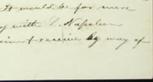 It would be far more
with L. Napoleon
receive by way of